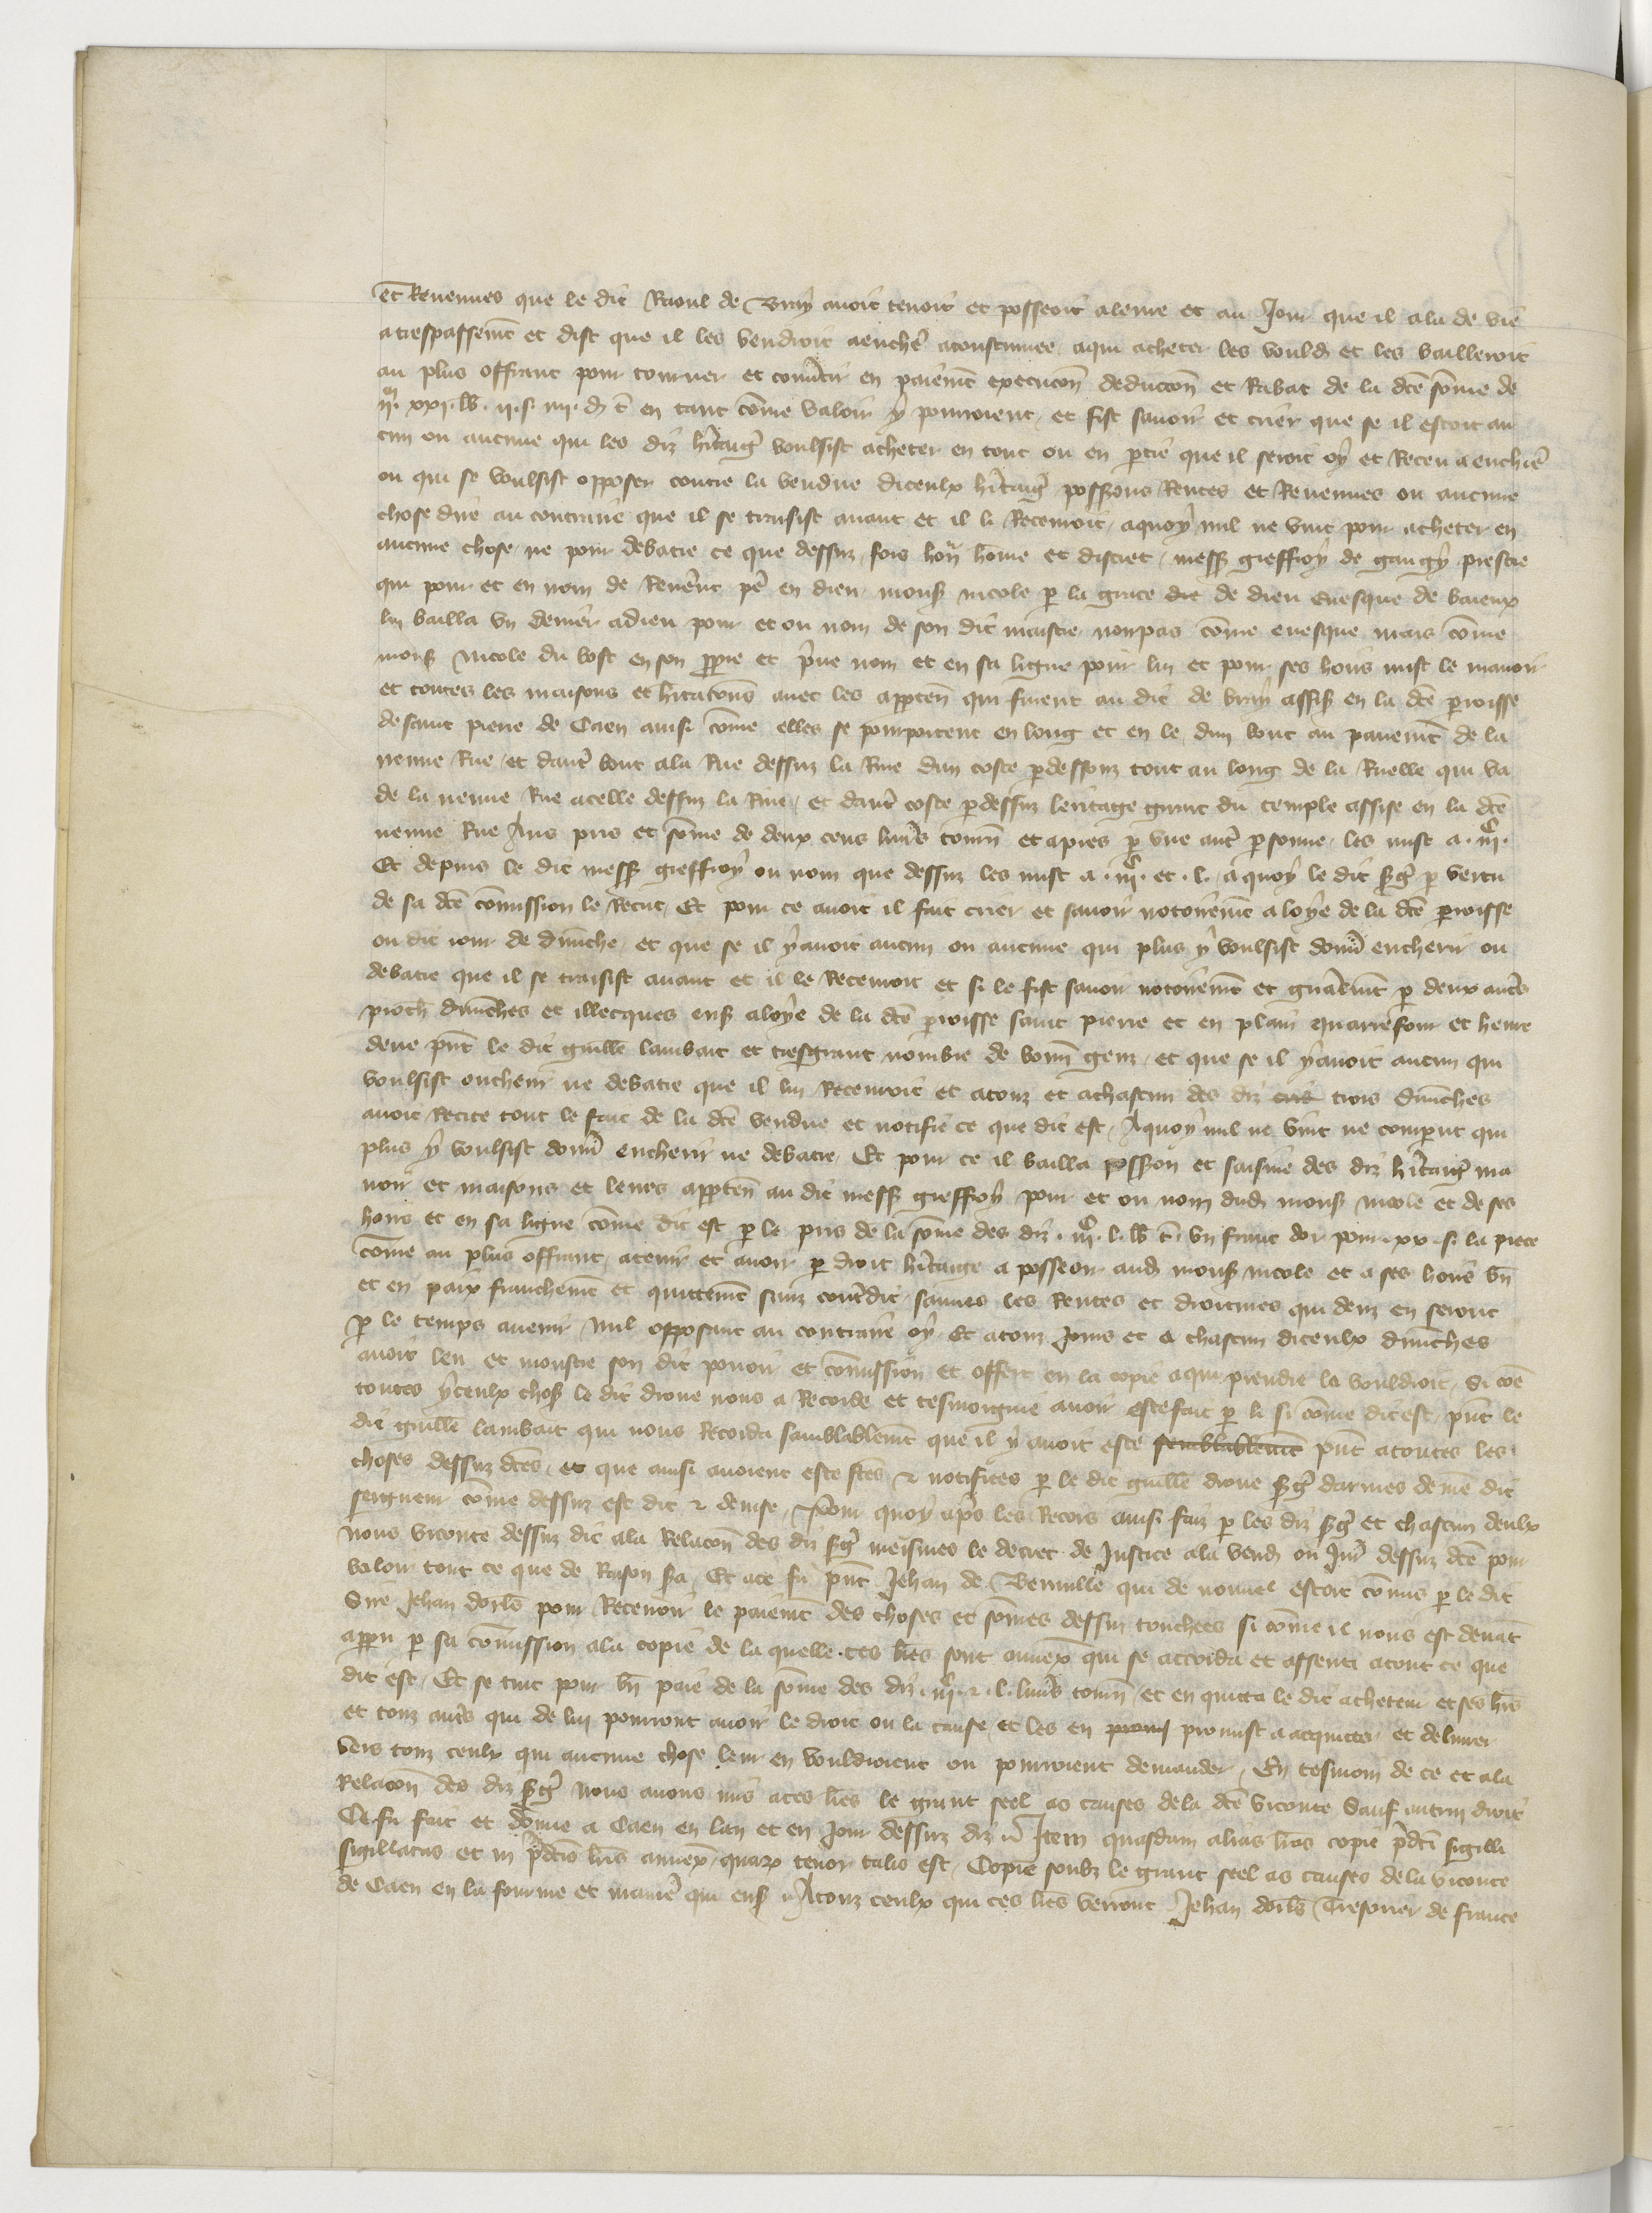 et Revenues que le dit Raoul de Bray avoit tenoit et posseoit a leure et au Jour que il ala de vie
a trespassemt et dist que il les vendroit a enchere acoustumee a qui acheter les vould et les bailleroit
au plus offrant pour tourner et convtir en paiemt execucon deduccon et Rabat de la dce some de
iim. xxi. lb. ii. s. iiii. d. t. en tant come valoir y pourroient, et fist savoir et crier que se il estoit au
cun ou aucune qui les diz hitaigˀ voulsist acheter en tout ou en ptie que il seroit oy et Receu a enchiere
ou qui se voulsist opposer contre la vendue diceulx hitaigˀ possons Rentes et Revenues ou aucune
chose dire au contraire que il se traisist avant et il li Recevroit, a quoy nul ne vint pour acheter en
aucune chose, ne pour debatre ce que dessuz, fors hon home et discret, mess gieffroy de gaugy prestre
qui pour et en nom de Reverent pe en dieu mons nicole p la grace de de dieu evesque de baieux
lui bailla un denier a dieu pour et ou nom de son dit maistre non pas come evesque mais come
mons Nicole du bost en son ppre et prive nom et en sa ligne pour lui et pour ses hoirs mist le manoir
et toutes les maisons et hitacions avec les apptenˀ qui furent au dit de bray assiss en la dce proisse
de saint pierre de Caen ainsi come elles se pourportent en long et en le, dun bout au pavemt de la
neuve Rue, et dautˀ bout a la Rue dessuz la Rive dun coste p dessouz tout au long de la Ruelle qui va
de la neuve Rue a celle dessuz la Rive, et dautˀ coste p dessuz leritage grant du temple assise en la dce
neuve Rue Aus pris et some de deux cens livres tournˀ et apres p une autˀ psonne, les mist a .iiic.
Et depuis le dit mess gieffroy ou nom que dessuz les mist a .iiic. et .l. a quoy le dit sgˀ p vertu
de sa dce comission le Recut, Et pour ce avoit il fait crier et savoir notoiremt a loye de la dce proisse
ou dit jour de dimche, et que se il y avoit aucun ou aucune qui plus y voulsist donnˀ encherir ou
debatre que il se traisist avant et il le Recevroit et si le fist savoir notoiremt et gnalemt p deux autres
proch dimches et illecques enss a loye de la dce proisse saint pierre et en plain quarrefour et heure
deue pnt le dit guille lambait et tresgrant nombre de bonnˀ genz, et que se il y avoit aucun qui
voulsist encherir ne debatre que il lui Recevroit et a touz et a chascun des diz trois dimches
avoit Recite tout le fait de la dce vendue et notifie ce que dit est, A quoy nul ne vint ne comparut qui
plus y voulsist donnˀ encherir ne debatre, Et pour ce il bailla posson et saisine des diz hitaigˀ ma
noir et maisons et leurs apptenˀ au dit mess gieffroy pour et ou nom dud mons nicole et de ses
hoirs et en sa ligne come dit est p le pris de la some des diz .iiic. l. lb. t. un franc dor pour .xx. s. la piece
come au plus offrant, a tenir et avoir p droit hitaige a posseoir aud mons nicole et a ses hoirs bn
et en paix franchemt et quittemt sanz contˀdit, sauves les Rentes et droitures qui deuz en seront
p le temps avenir Nul opposant au contraire oy, Et a touz Jours et a chascun diceulx dimches
avoit leu et monstre son dit pouoir et comission et offert en la copie a qui prendre la vouldroit, Si coe
toutes yceulx choss le dit droue nous a Recorde et tesmoigne avoir este fait p li si come dit est, pnt le
dit guille lambait qui nous Recorda samblablemt que il y avoit este semblablemt pnt a toutes les
choses dessuz dces, et que ainsi avoient este fces & notifiees p le dit guille droue sgˀ darmes de me dit
seigneur come dessuz est dit & devise, Pour quoy apˀs les Recors ainsi faiz p les diz sgˀ et chascun deulx
Nous viconte dessuz dit a la Relacon des diz sgˀ meismes le decret de Justice a la vend ou Jurˀ dessuz dce pour
valoir tout ce que de Raison sa, Et a ce fu pnt Jehan de Vernulle qui de nouvel estoit comis p le dit
Sire Jehan dorls pour Recevoir le paiemt des choses et somes dessuz touchees si come il nous est devat
apparu p sa comission a la copie de la quelle ces lres sont annexˀ qui se accorda et assenti a tout ce que
dit est, Et se tint pour bn paie de la some des diz .iiic. & .l. livres tournˀ, et en quitta le dit acheteur et ses hrs
et touz autˀs qui de lui pourront avoir le droit ou la cause, et les en promi promist a acquitter et delivrer
vers touz ceulx qui aucune chose leur en vouldroient ou pourroient demander, En tesmoin de ce et a la
Relacon des diz sgˀ Nous avons mis a ces lres le grant seel as causes de la dce viconte Sauf autrui droit
Ce fu fait et donne a Caen en lan et en Jour dessuz diz Item quasdam alias lras copie pdci sigilli
sigillatas et in pdcis lris annexˀ, quarˀ tenor talis est, Copie soubz le grant seel as causes de la viconte
de Caen en la fourme et maniere qui enss A touz ceulx qui ces lres verront Jehan dorls Tresorier de france